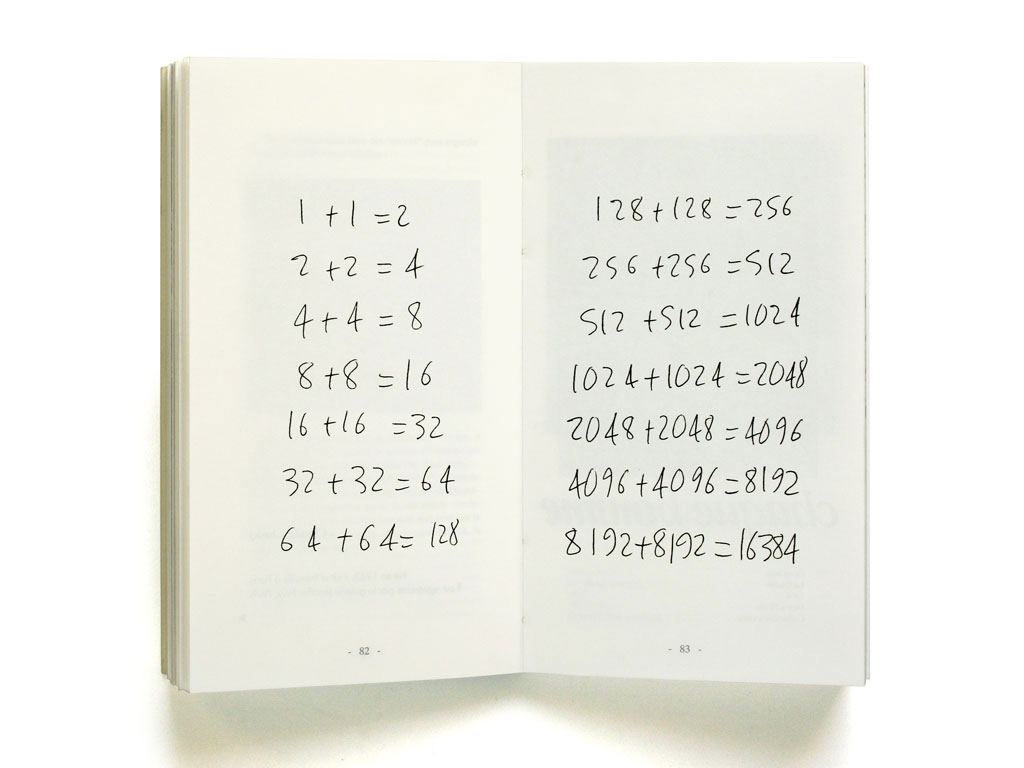 1 + 1 = 2
2 + 2 = 4
4 + 4 = 8
8 + 8 = 16
16 + 16 = 32
32 + 32 = 64
64 + 64 = 128
- 82 -
128 + 128 = 256
256 + 256 = 512
512 + 512 = 1024
1024 + 1024 = 2048
2048 + 2048 = 4096
4096 + 4096 = 8192
8192 + 8192 = 16384
- 83 -